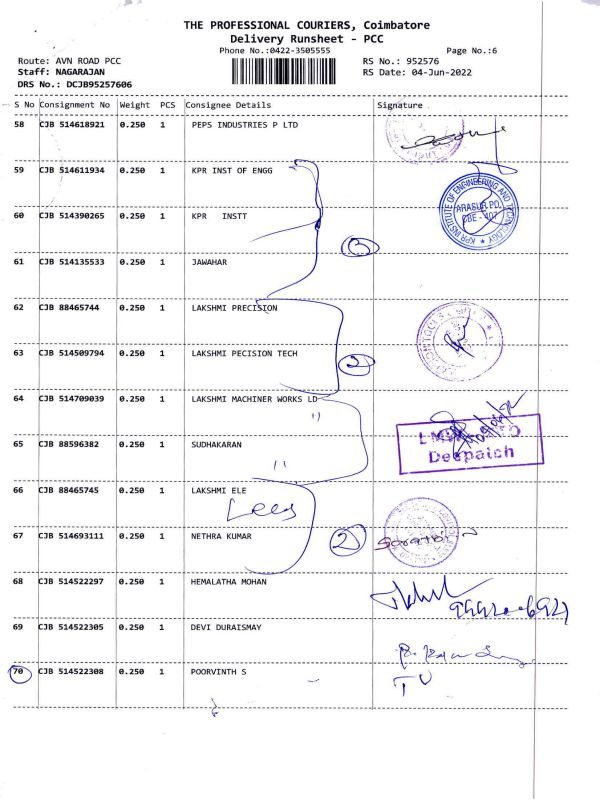 THE PROFESSIONAL COURIERS, Coimbatore
Delivery Runsheet - PCC
Phone No.:0422-3505555 Page No.:6
Route: AVN ROAD PCC RS No.: 952576
Staff: NAGARAJAN RS Date: 04-Jun-2022
DRS No.: DCJB95257606
S No Consignment No Weight PCS Consignee Details Signature
58 CJB 514618921 0.250 1 PEPS INDUSTRIES P LTD
59 CJB 514611934 0.250 1 KPR INST OF ENGG
KPR INSTITUTE OF ENGINEERING AND TECHNOLOGY
ARASUR PO,
CBE - 407
60 CJB 514390265 0.250 1 KPR INSTT
3
61 CJB 514135533 0.250 1 JAWAHAR
62 CJB 88465744 0.250 1 LAKSHMI PRECISION
63 CJB 514509794 0.250 1 LAKSHMI PECISION TECH
2
64 CJB 514709039 0.250 1 LAKSHMI MACHINER WORKS LD
Despatch
65 CJB 88596382 0.250 1 SUDHAKARAN
66 CJB 88465745 0.250 1 LAKSHMI ELE
67 CJB 514693111 0.250 1 NETHRA KUMAR
2
68 CJB 514522297 0.250 1 HEMALATHA MOHAN
69 CJB 514522305 0.250 1 DEVI DURAISMAY
70 CJB 514522308 0.250 1 POORVINTH S